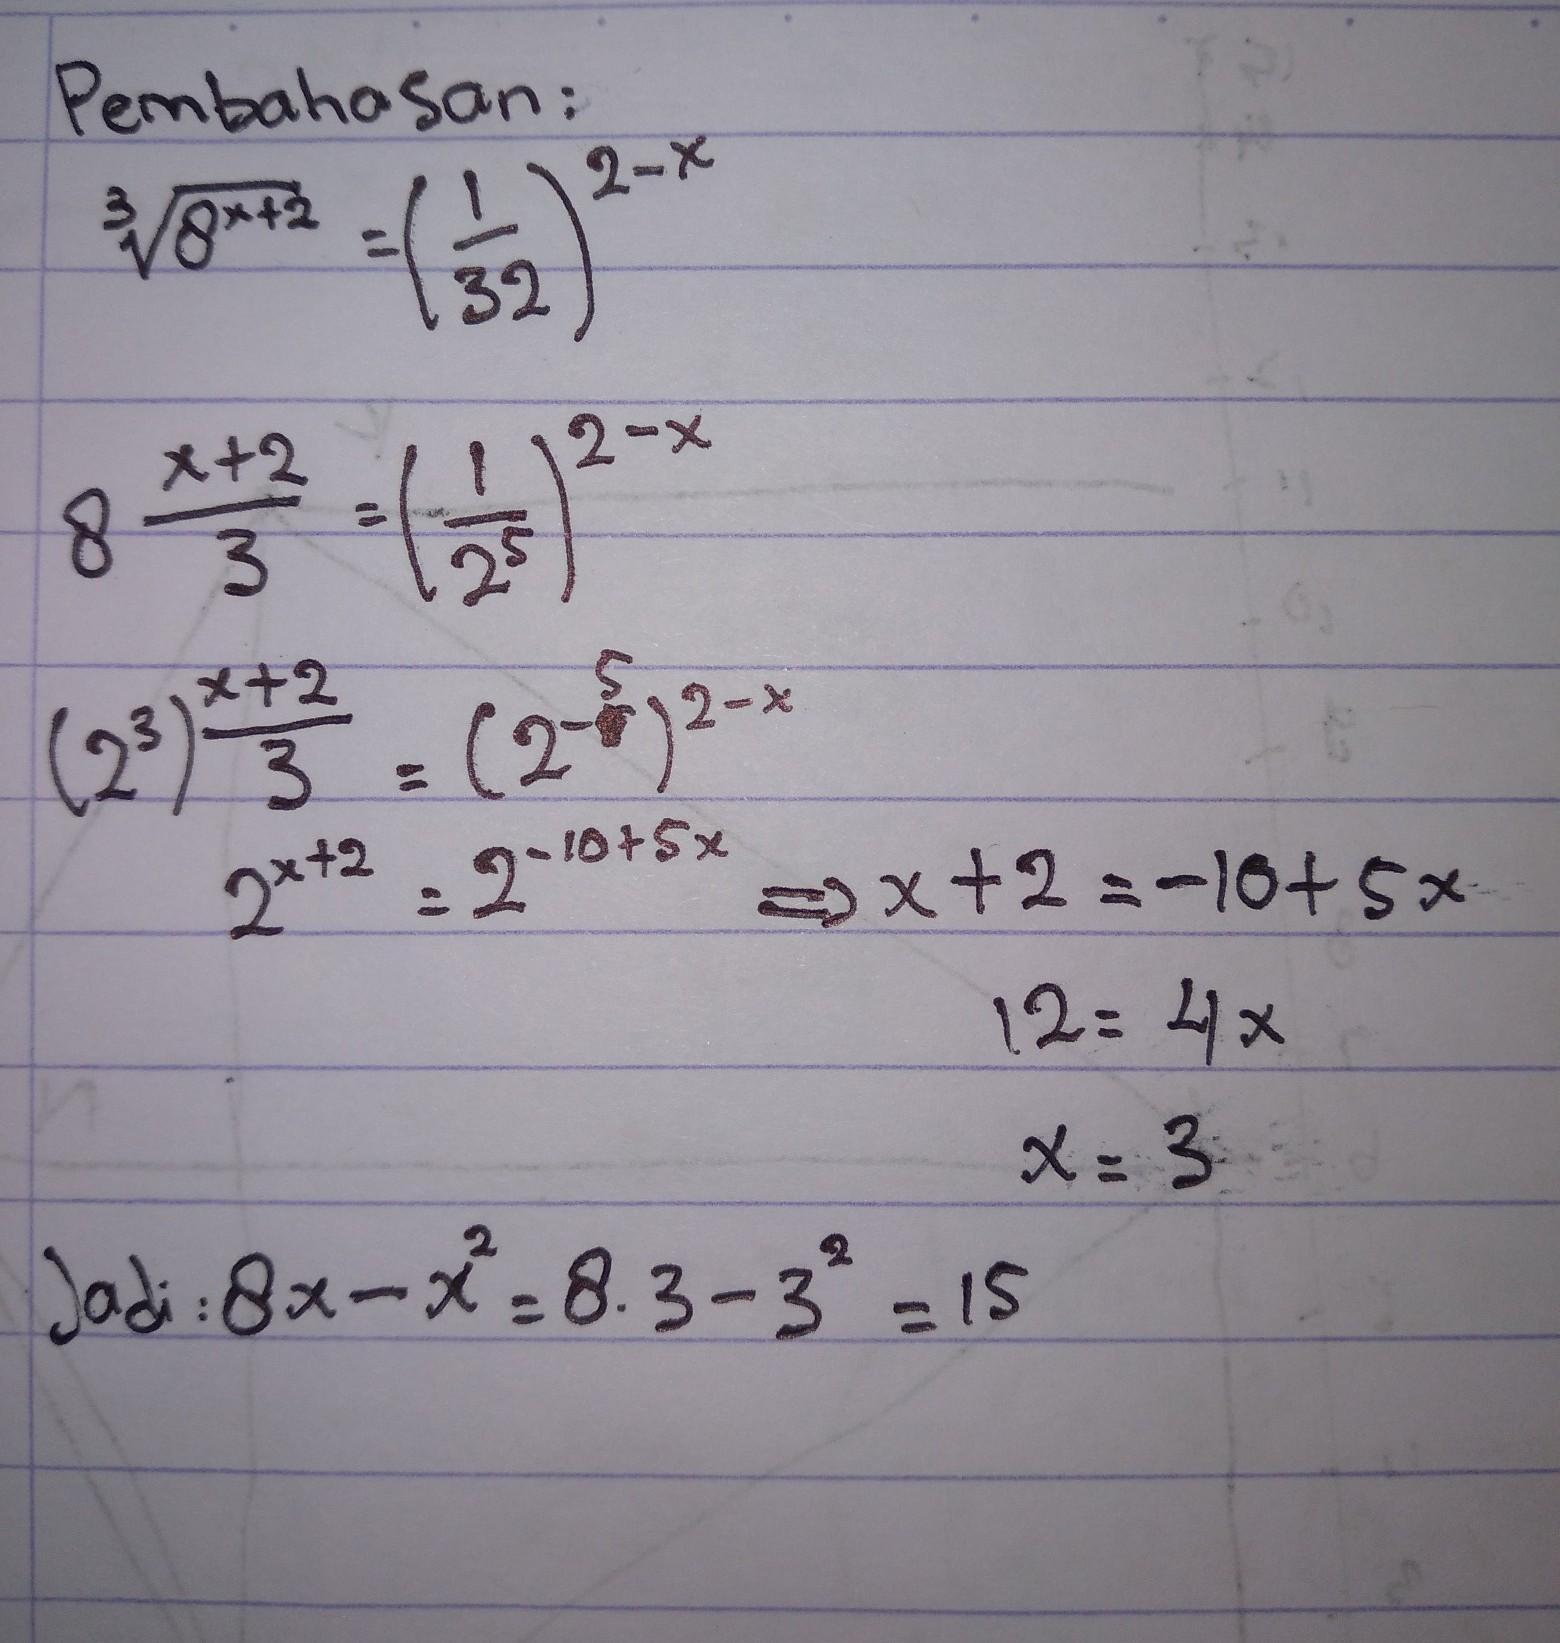 Pembahasan:
∛(8^(x+2)) = (1/32)^(2-x)
8^((x+2)/3) = (1/2^5)^(2-x)
(2^3)^((x+2)/3) = (2^-5)^(2-x)
2^(x+2) = 2^(-10+5x) ⇒ x+2 = -10+5x
12 = 4x
x = 3
Jadi: 8x - x² = 8.3 - 3² = 15